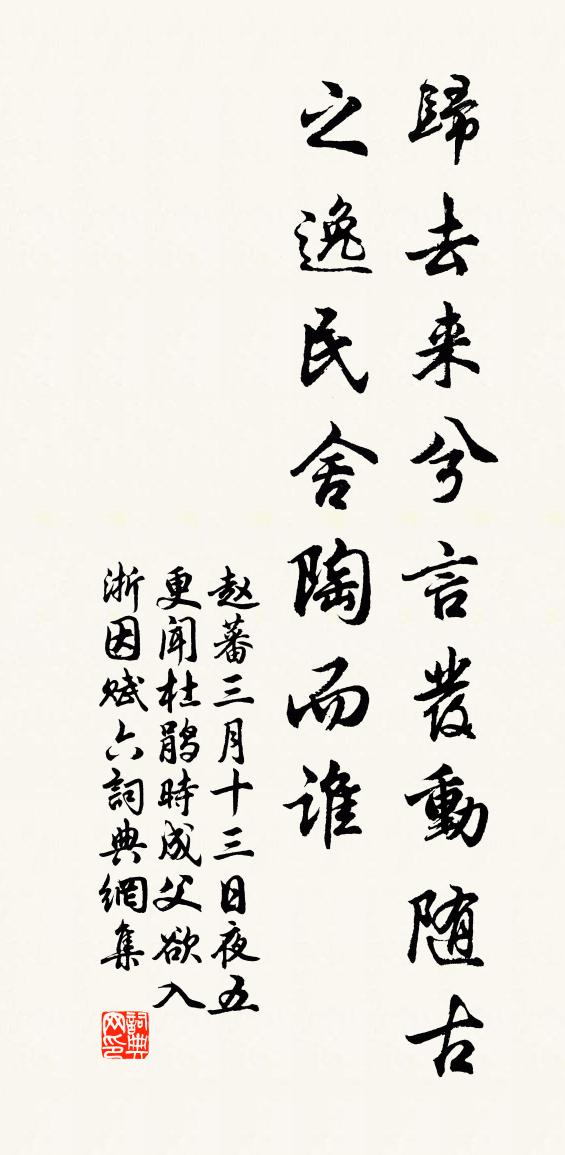 歸去来兮言發動随古
之逸民舍陶而谁
赵蕃三月十三日夜五
更闻杜鹃時成父欲入
浙因赋六詞典網集
詞典
网印